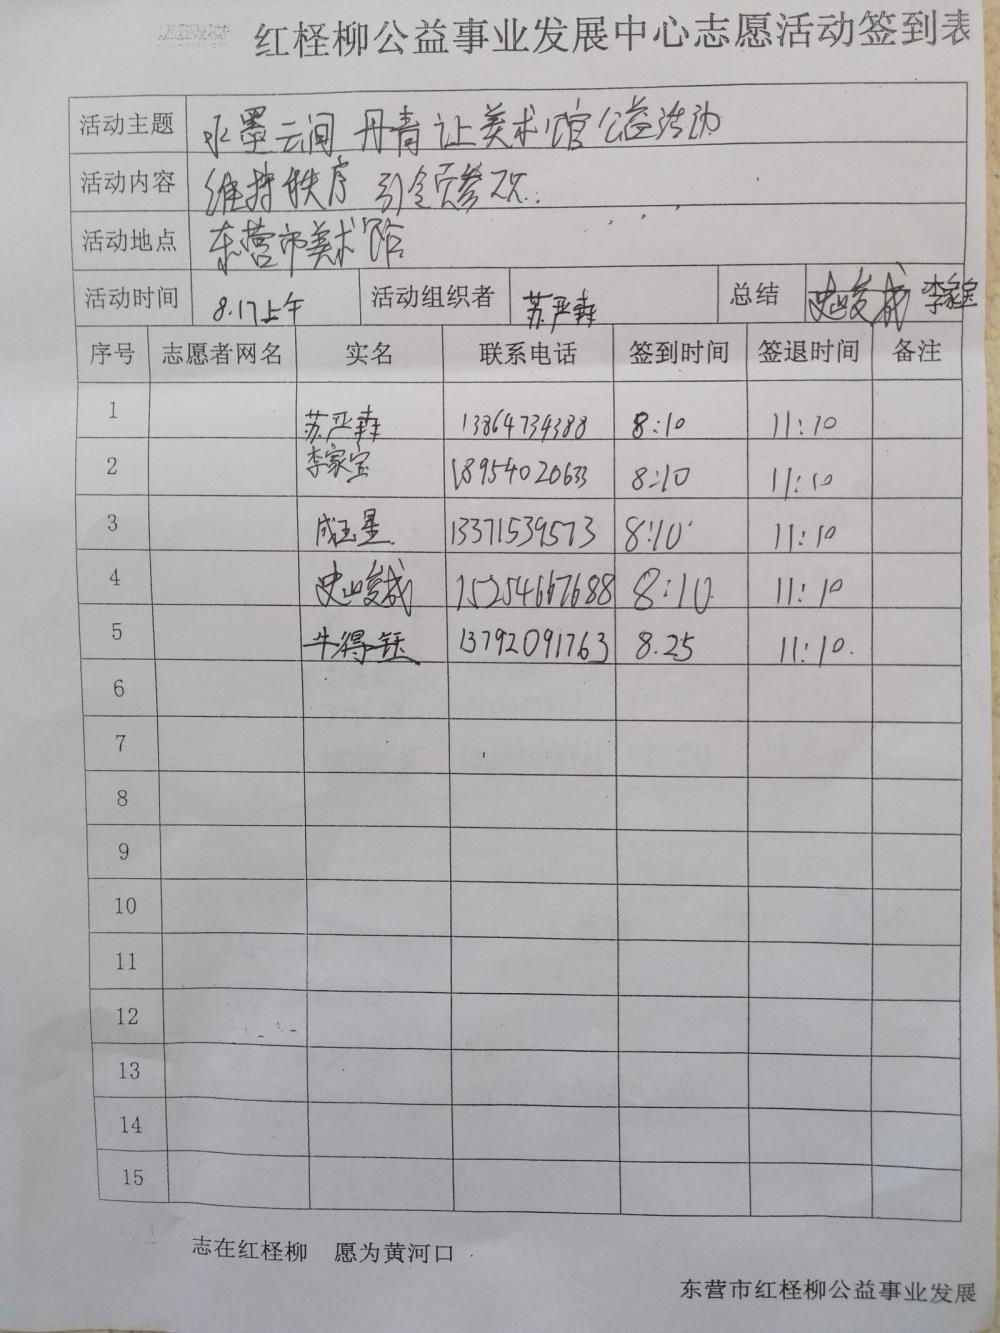 红柽柳公益事业发展中心志愿活动签到表
活动主题 水墨云间 丹青让美术馆公益活动
活动内容 维持秩序 引
活动地点 东营市美术馆
活动时间 8.17上午 活动组织者 苏严森 总结 史峻成 李家宝
序号 志愿者网名 实名 联系电话 签到时间 签退时间 备注
1 苏严森 13864734388 8:10 11:10
2 李家宝 18954020633 8:10 11:10
3 成玉星 13371539573 8:10 11:10
4 史峻成 15254667688 8:10 11:10
5 牛得钰 13792091763 8.25 11:10.
6
7
8
9
10
11
12
13
14
15
志在红柽柳 愿为黄河口
东营市红柽柳公益事业发展